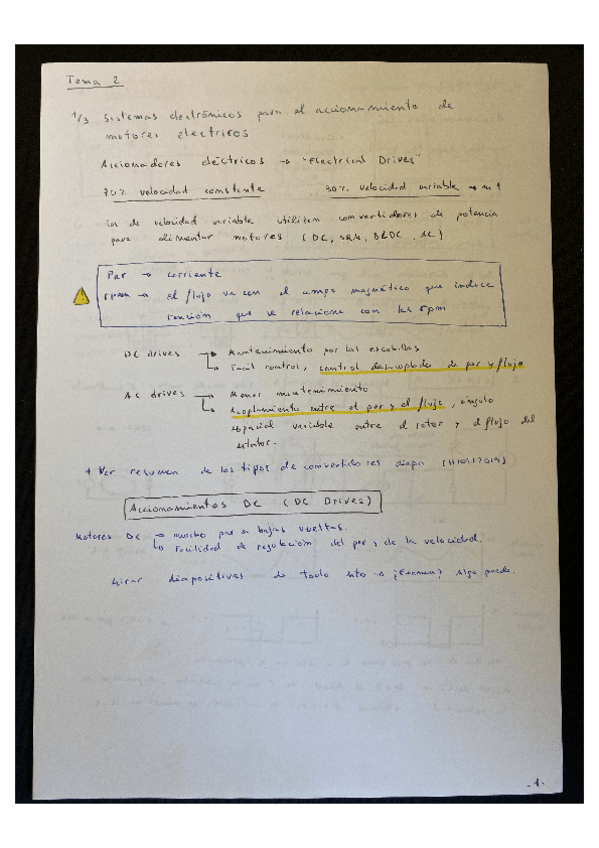 Tema 2
Sistemas electrónicos para el accionamiento de
motores eléctricos
Accionadores eléctricos → "Electrical Drives"
70% velocidad constante 30% velocidad variable →
Los de velocidad variable utilizan convertidores de potencia
para alimentar motores (DC, SRM, BLDC, AC)
Par → corriente
rpm → el flujo va con el campo magnático que induce
tensión que se relaciona con las rpm
DC drives → Mantenimiento por las escobillas
↳ Fácil control, control desacoplado de par y flujo
AC drives → Menor mantenimiento
↳ Acoplamiento entre el par y el flujo, ángulo
espacial variable entre el rotor y el flujo del
estator.
* Ver resumen de los tipos de convertidores diapo
Accionamientos DC (DC Drives)
Motores DC → mucho par a bajas vueltas.
↳ facilidad de regulación del par y de la velocidad.
Mirar diapositivas de todo esto → ¿Examen?
-1-